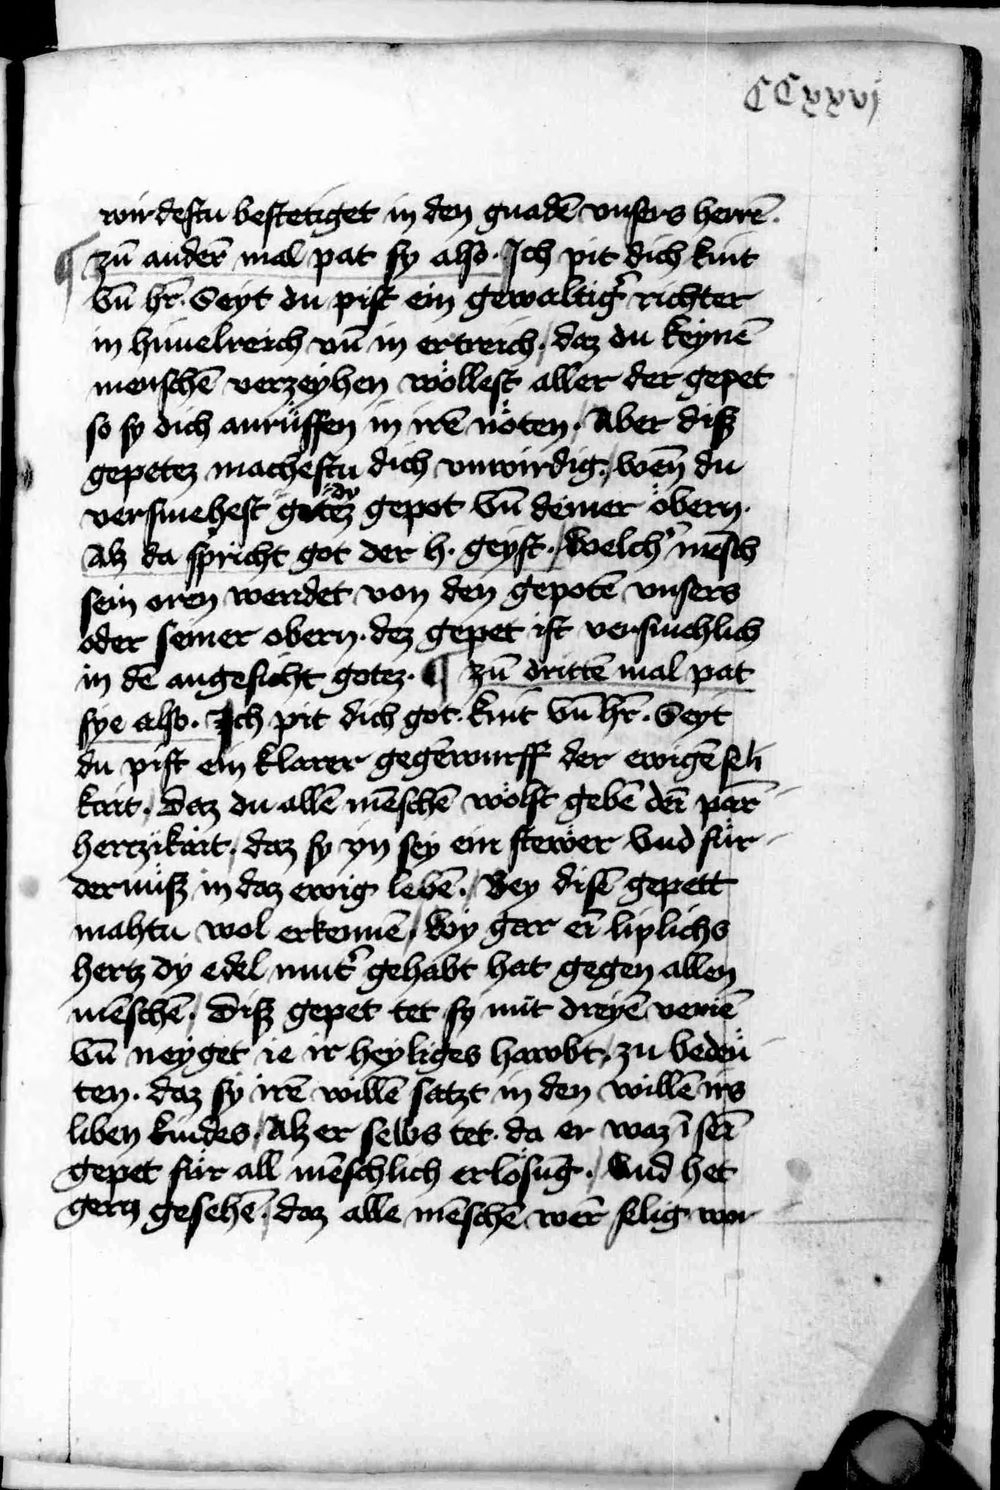 CCxxvj
wirdestu bestetiget in den gnadē vnsers herrē.
¶ zū anderͤ mal pat sy also. Ich pit dich kint
vn̄ hr̄. Seyt du pist ein gewaltig̕ richter
in himelreich vn̄ in ertreich, daz du keynē
menschē verzeyhen wöllest aller der gepet
so sy dich anrüffen in irē nöten. Aber diß
gepetez machestu dich vnwirdig, wen̄ du
versmehest gotez gepot vn̄ deiner öbern.
Alz da spricht got der h. geyst. Welch̕ mēsch
sein oren wendet von den gepotē vnsers
oder seiner obern. dez gepet ist versmehlich
in dē angesicht gotez. ¶ zū drittē mal pat
sye also. Ich pit dich got kint vn̄ hr̄. Seyt
du pist ein klarer gegēwurff der ewigē seli
kait. Daz du allē mēschē wölst gebē dei̅ par̄
hertzikait, daz sy yn sey ein stewer vnd für
dernüß in daz ewig lebē. Bey disē gepett
mahtu wol erkennē, wy gar ei̅ liplichs
hertz dy edel mut̕ gehabt hat gegen allen
mēschē. Diß gepet tet sy mit dreyē veniē
vn̄ neyget ie ir heyliges hawbt, zu bedeü
ten. daz sy irē willē satzt in den willē irs
liben kindes. Alz er selbs tet. da er waz ī sei̅
gepet für all mēschlich erlösūg. Vnd het
gern gesehē, daz alle mēschē wer̄ selig wor